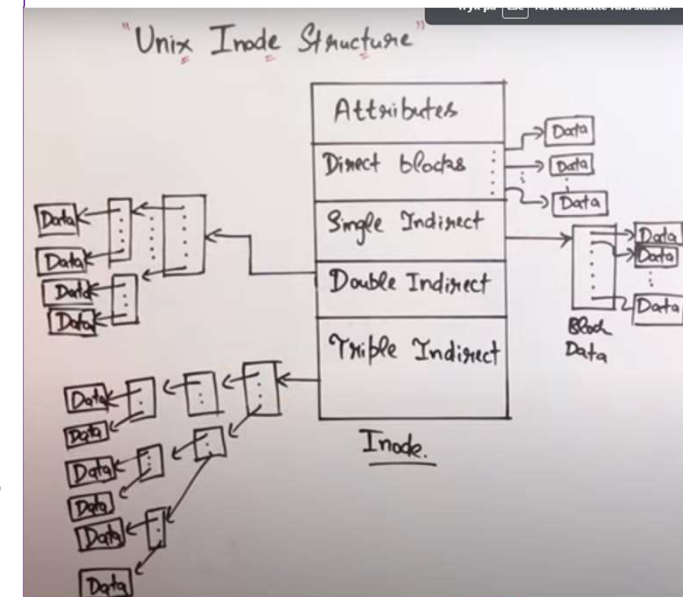 "Unix Inode Structure"
Attributes
Direct blocks
Single Indirect
Double Indirect
Triple Indirect
Inode.
Data
Data
Data
Data
Data
Data
Block
Data
Data
Data
Data
Data
Data
Data
Data
Data
Data
Data
Esc